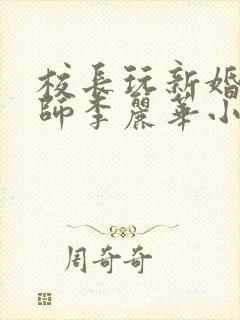 校長玩新婚
師李麗華小
周奇奇